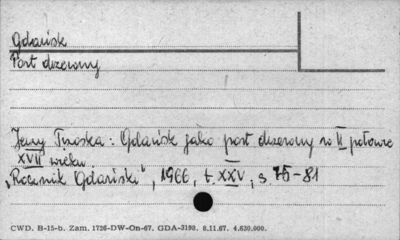 Gdańsk
Port drzewny
Jerzy Trzoska: Gdańsk jako port drzewny w II połowie
XVII wieku.
"Rocznik Gdański", 1966, t. XXV, s. 75-81
CWD. B-15-b. Zam. 1736-DW-On-67. GDA-3198. 8.11.67. 4.620.000.